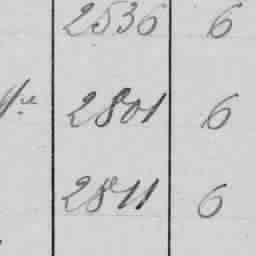 2536 6
2801 6
2811 6